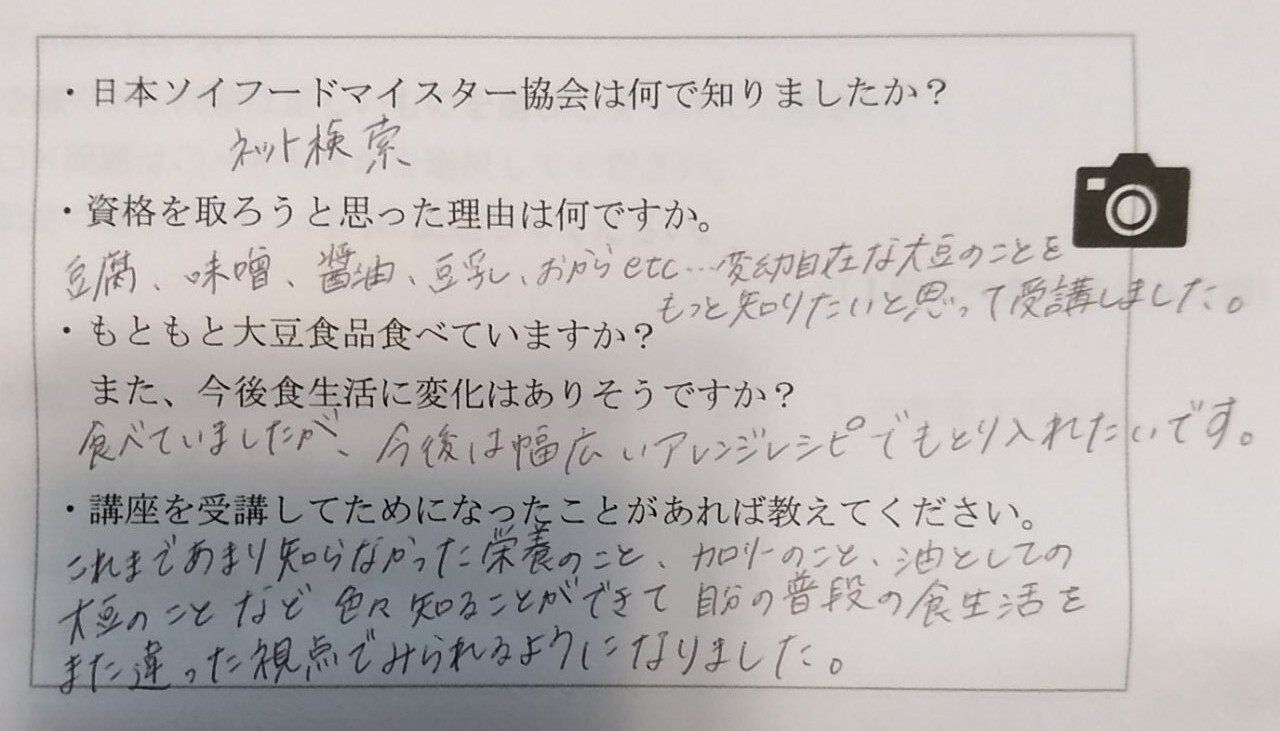 ・日本ソイフードマイスター協会は何で知りましたか？
ネット検索
・資格を取ろうと思った理由は何ですか。
豆腐、味噌、醬油、豆乳、おからetc…変幻自在な大豆のことを
もっと知りたいと思って受講しました。
・もともと大豆食品食べていますか？
また、今後食生活に変化はありそうですか？
食べていましたが、今後は幅広いアレンジレシピでもとり入れたいです。
・講座を受講してためになったことがあれば教えてください。
これまであまり知らなかった栄養のこと、カロリーのこと、油としての
大豆のことなど色々知ることができて自分の普段の食生活を
また違った視点でみられるようになりました。